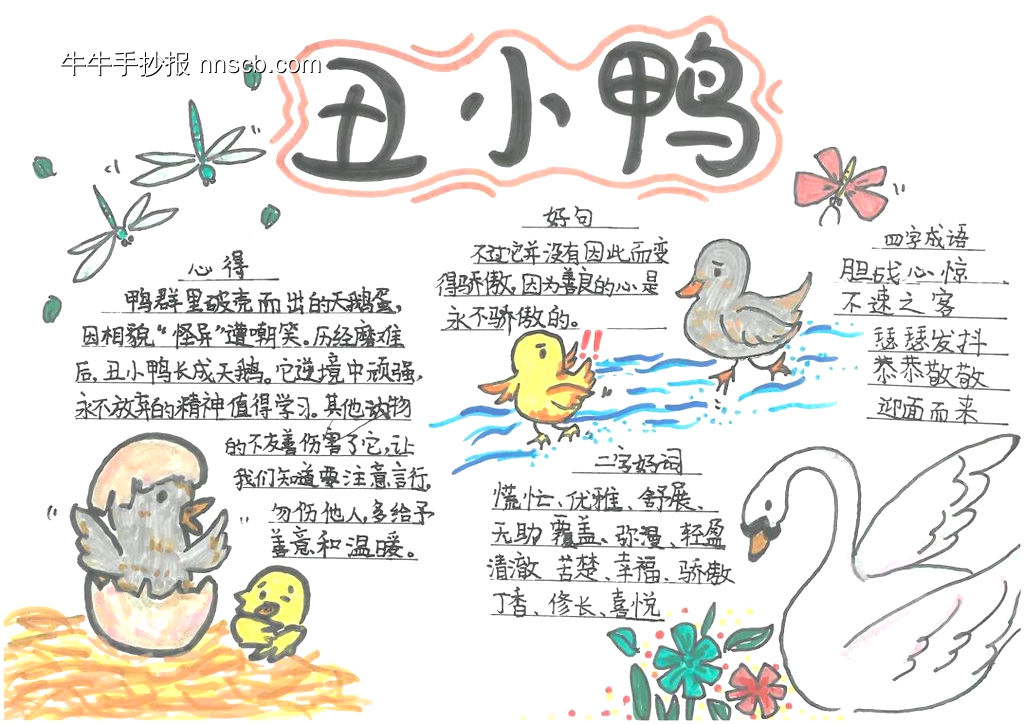 牛牛手抄报 nnscb.com
丑小鸭
心得
鸭群里破壳而出的天鹅蛋,
因相貌“怪异”遭嘲笑。历经磨难
后,丑小鸭长成天鹅。它逆境中顽强,
永不放弃的精神值得学习。其他动物
的不友善伤害了它,让
我们知道要注意言行,
勿伤他人,多给予
善意和温暖。
好句
不过它并没有因此而变
得骄傲,因为善良的心是
永不骄傲的。
!!
二字好词
慌忙、优雅、舒展、
无助 覆盖、弥漫、轻盈
清澈 苦楚、幸福、骄傲
丁香、修长、喜悦
四字成语
胆战心惊
不速之客
瑟瑟发抖
恭恭敬敬
迎面而来